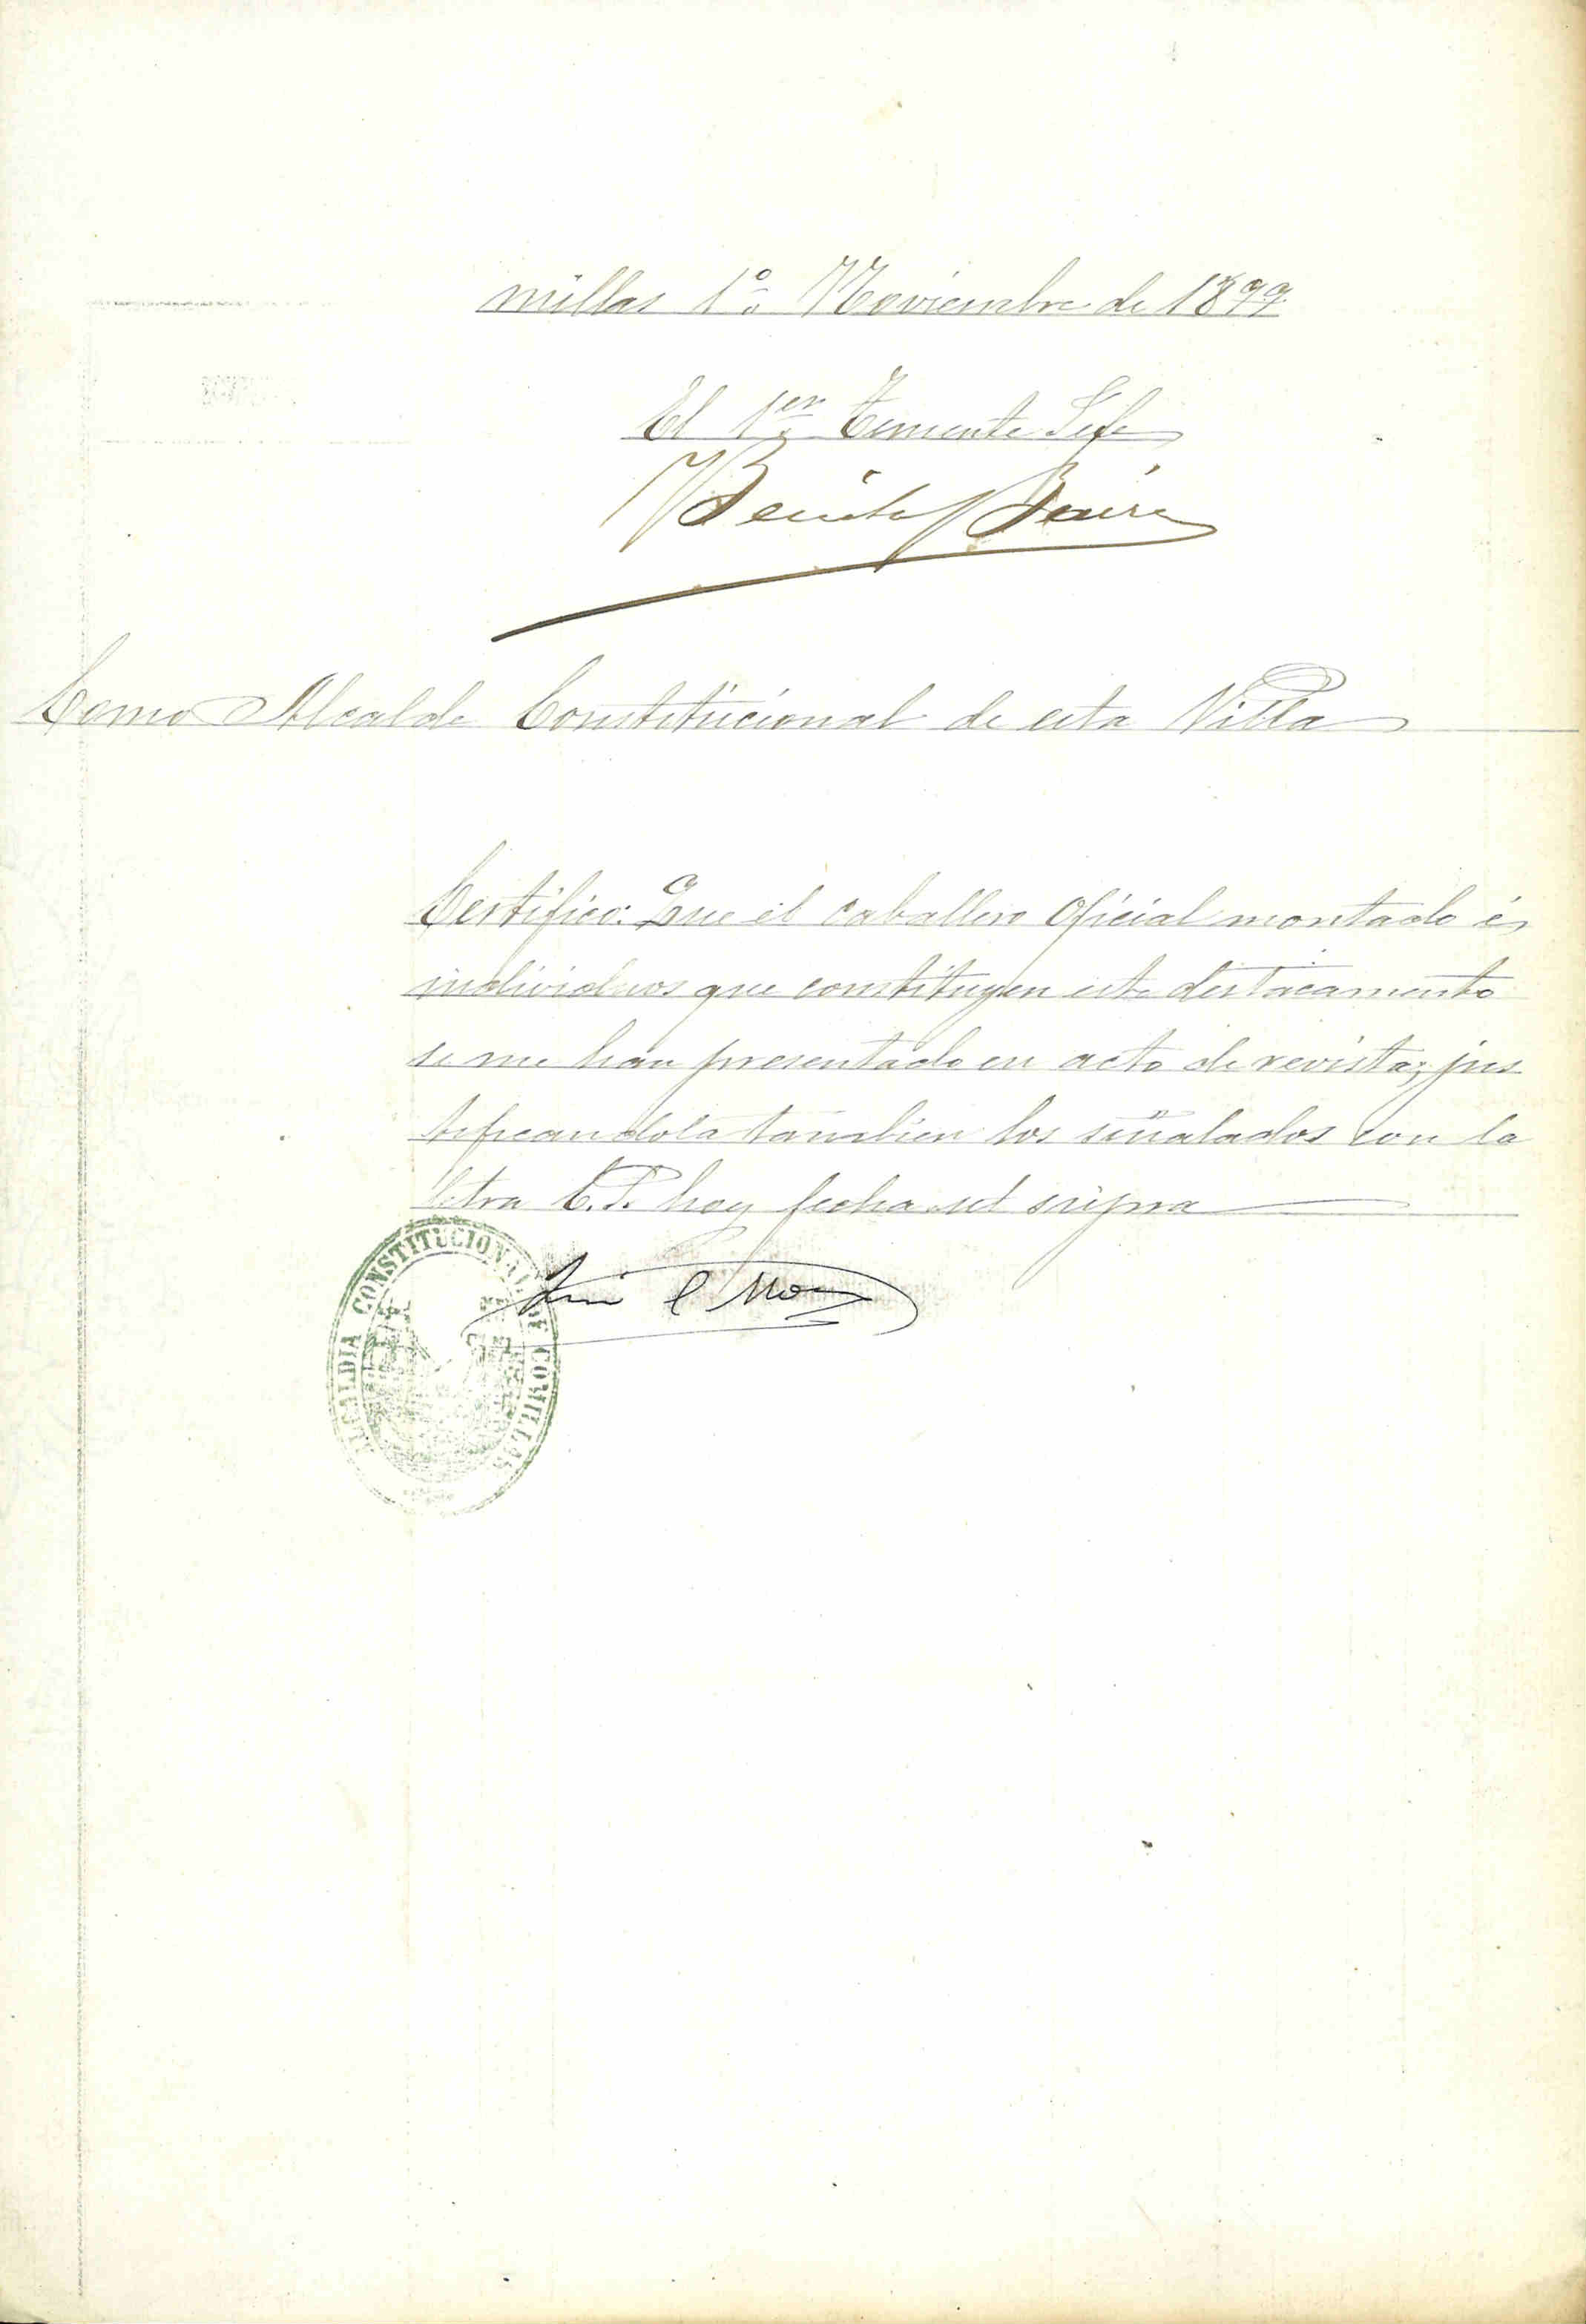 millas 1º Noviembre de 1899.
El 1er Teniente Jefe
Benito
Como Alcalde Constitucional de esta Villa
Certifico: Que el caballero Oficial montado é
individuos que constituyen este destacamento
se me han presentado en acto de revista, jus
tificandola tambien los señalados con la
letra C.P. hoy fecha ut supra
ALCALDIA CONSTITUCIONAL DE COMILLAS